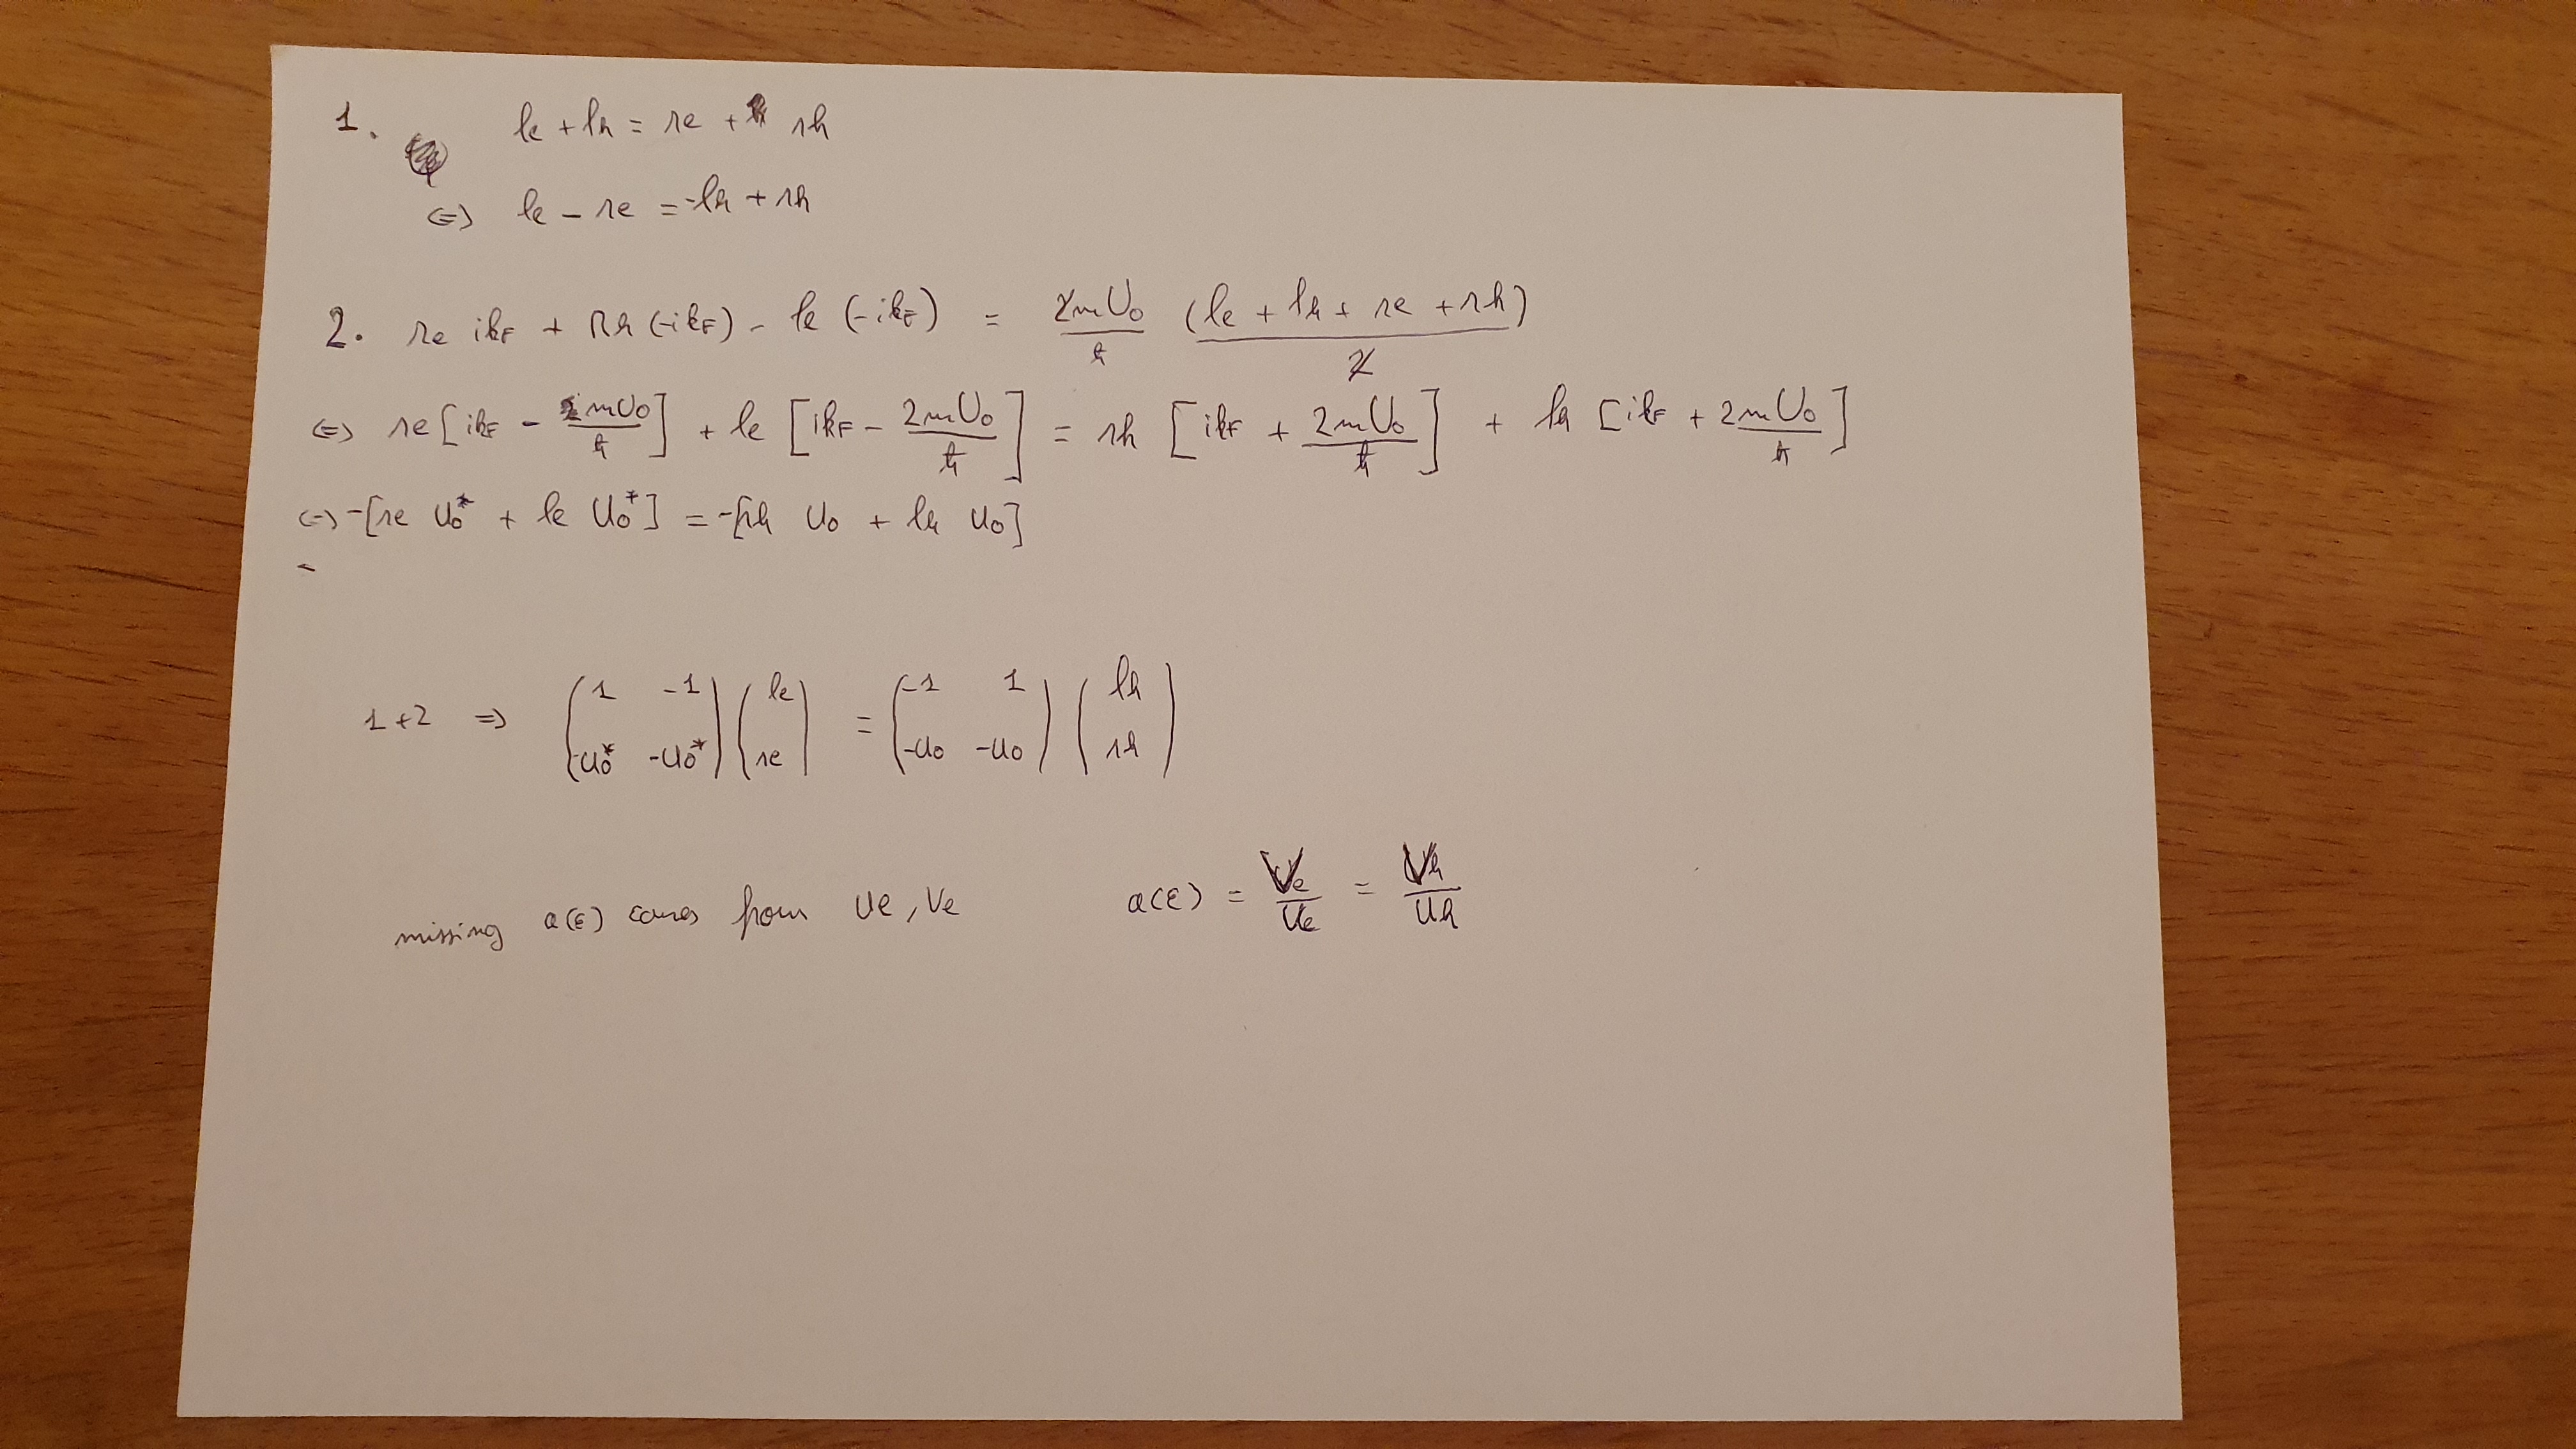 1. le + lh = re + rh
<=> le - re = -lh + rh
2. re ikF + rh (-ikF) - le (-ikF) = 2mU0/ħ (le + lh + re + rh)/2
<=> re [ikF - mU0/ħ] + le [ikF - 2mU0/ħ] = rh [ikF + 2mU0/ħ] + lh [ikF + 2mU0/ħ]
<=> -[re u0* + le u0*] = -[rh u0 + lh u0]
-
1+2 => (1 -1; -u0* -u0*) (le; re) = (-1 1; -u0 -u0) (lh; rh)
missing a(ε) comes from ue, ve a(ε) = ve/ue = vh/uh